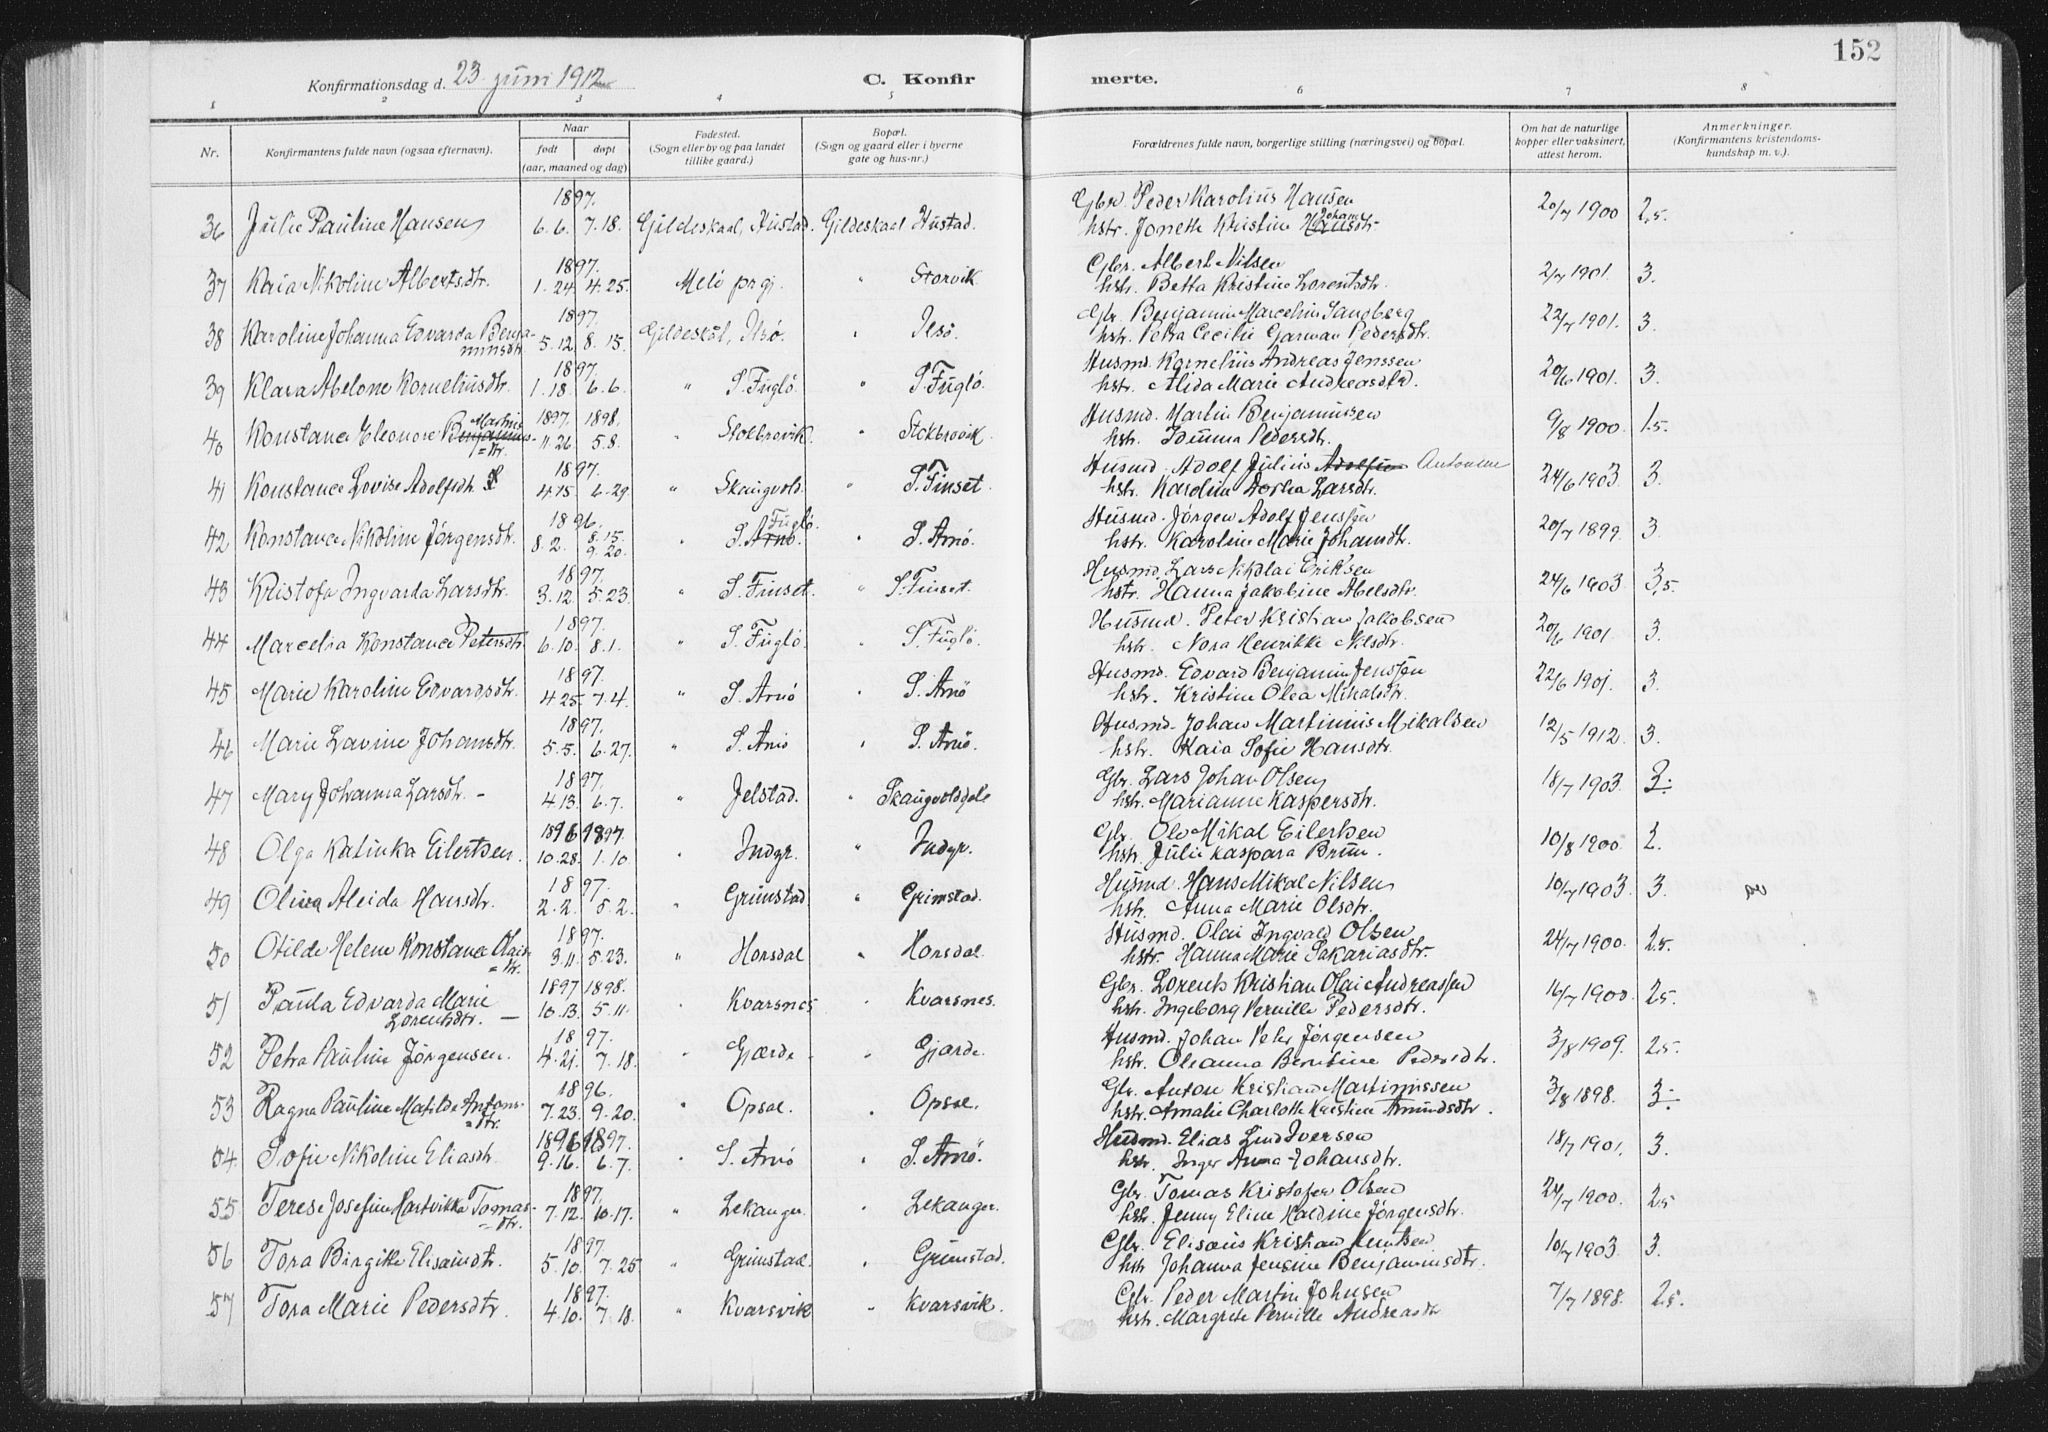 152
Konfirmationsdag d. 23. juni 1912
C. Konfir merte.
1 2 3 4 5 6 7 8
Nr. Konfirmantens fulde navn (ogsaa efternavn). Naar født døpt (aar, maaned og dag) Fødested. (Sogn eller by og paa landet tillike gaard.) Bopæl. (Sogn og gaard eller i byerne gate og hus-nr.) Forældrenes fulde navn, borgerlige stilling (næringsvei) og bopæl. Om hat de naturlige kopper eller vaksinert, attest herom. Anmerkninger. (Konfirmantens kristendomskundskap m. v.).
1897. Gbr. Peder Karolius Hansen
36 Julie Pauline Hansen 6.6. 7.18. Gildeskaal, Hustad. Gildeskaal Hustad. hstr. Jonette Kristine Hansdtr. Johans 20/7 1900 2,5.
1897. Gbr. Albert Nilsen
37 Kaia Nikoline Albertsdtr. 1.24 4.25. Melø prgj. " Storvik hstr. Betta Kristine Lorentsdtr. 2/7 1901. 3.
1897. Gbr. Benjamin Marcelius Sandberg
38 Karoline Johanna Edvarda Benjaminsdtr. 5.12. 8.15. Gildeskål, Ilsø. " Ilsø. hstr. Petra Cecilie Garman Pedersdtr. 22/7 1901. 3.
1897. Husmd. Kornelius Andreas Jenssen
39 Klara Abelone Korneliusdtr. 1.18. 6.6. " S. Fuglø. " S. Fuglø. hstr. Alida Marie Andreasdtr. 20/6 1901. 3.
1897. 1898. Husmd. Martin Benjaminsen
40 Konstance Eleonore Benjamins- Martins =dtr. 11.26 5.8. " Stokbrovik. " Stokbrovik hstr. Idunna Pedersdtr. 9/8 1900. 1.5.
1897. Husmd. Adolf Julius Adolfsen Antonsen
41 Konstance Lovise Adolfsdtr. 4.15. 6.29. " Skaugvold. " S. Finset. hstr. Karoline Dortea Larsdtr. 24/6 1903. 3.
1896. Husmd. Jørgen Adolf Jenssen
42 Konstance Nikoline Jørgensdtr. 8.2. 8.15. 9.20. " S. Arnø. Fuglø. " S. Arnø. hstr. Karoline Marie Johansdtr. 20/7 1899. 3.
1897. Husmd. Lars Nikolai Eriksen
43 Kristofa Ingvarda Larsdtr. 3.12. 5.23. " S. Finset. " S. Finset. hstr. Hanna Jakobine Abelsdtr. 24/6 1903. 3,5.
1897. Husmd. Peter Kristian Jakobsen
44 Marcelia Konstance Petersdtr. 6.10. 8.1. " S. Fuglø. " S. Fuglø. hstr. Nora Henrikke Nilsdtr. 20/6 1901. 3.
1897. Husmd. Edvard Benjamin Jenssen
45 Marie Karoline Edvardsdtr. 4.25. 7.4. " S. Arnø " S. Arnø hstr. Kristine Olea Mikalsdtr. 22/6 1901. 3.
1897. Husmd. Johan Martinius Mikalsen
46 Marie Lavine Johansdtr. 5.5. 6.27. " S. Arnø " S. Arnø. hstr. Kaia Sofie Hansdtr. 12/5 1912. 3.
1897. Gbr. Lars Johan Olsen
47 Mary Johanna Larsdtr. - 4.13. 6.7. " Jelstad. " Skaugvoldgde hstr. Marianne Kaspersdtr. 18/7 1903. 2.
1896 1897 Gbr. Ole Mikal Eilertsen
48 Olga Katinka Eilertsen. 10.28. 1.10. " Indyr. " Indyr. hstr. Julie Kaspara Bruun. 10/8 1900. 2.
1897. Husmd. Hans Mikal Nilsen
49 Oliva Aleida Hansdtr. 2.2. 5.2. " Grimstad. " Grimstad. hstr. Anna Marie Olsdtr. 10/7 1903. 3.
1897. Husmd. Olai Ingvald Olsen
50 Otilde Helene Konstance Olais =dtr. 3.11. 5.23. " Horsdal " Horsdal. hstr. Hanna Marie Sakariasdtr. 24/7 1900. 2.5.
1897 1898. Gbr. Lorents Kristian Olai Andreassen
51 Paula Edvarda Marie Lorentsdtr. 10.13. 5.11. " Kvarsnes " Kvarsnes. hstr. Ingeborg Pernille Pedersdtr. 16/7 1900. 2.5.
1897. Husmd. Johan Peter Jørgensen
52 Petra Pauline Jørgensen. 4.21. 7.18. " Gjærde " Gjærde. hstr. Oleanna Berntine Pedersdtr. 3/8 1909. 2.5.
1896. Gbr. Anton Kristian Martinussen
53 Ragna Pauline Matilde Antons- =dtr. 7.23. 9.20. " Opsal. " Opsal. hstr. Amalie Charlotte Kristine Amundsdtr. 3/8 1898. 3.
1896 1897. Husmd. Elias Lind Iversen
54. Sofie Nikoline Eliasdtr. 9.16. 6.7. " S. Arnø " S. Arnø. hstr. Inger Anna Johansdtr. 18/7 1901. 3.
1897. Gbr. Tomas Kristofer Olsen
55 Terese Josefine Hartvikka Tomas- =dtr. 7.12. 10.17. " Lekanger. " Lekanger. hstr. Jenny Eline Kaldine Jørgensdtr. 24/7 1900. 2.5
1897. Gbr. Elisæus Kristian Knutsen
56 Tora Birgitte Elisæusdtr. 5.10. 7.25 " Grimstad. " Grimstad. hstr. Johanna Jensine Benjaminsdtr. 10/7 1903. 3.
1897. Gbr. Peder Martin Johnsen
57 Tora Marie Pedersdtr. 4.10. 7.18. " Kvarsvik " Kvarsvik. hstr. Margrete Pernille Andreasdtr 7/7 1898. 2.5.